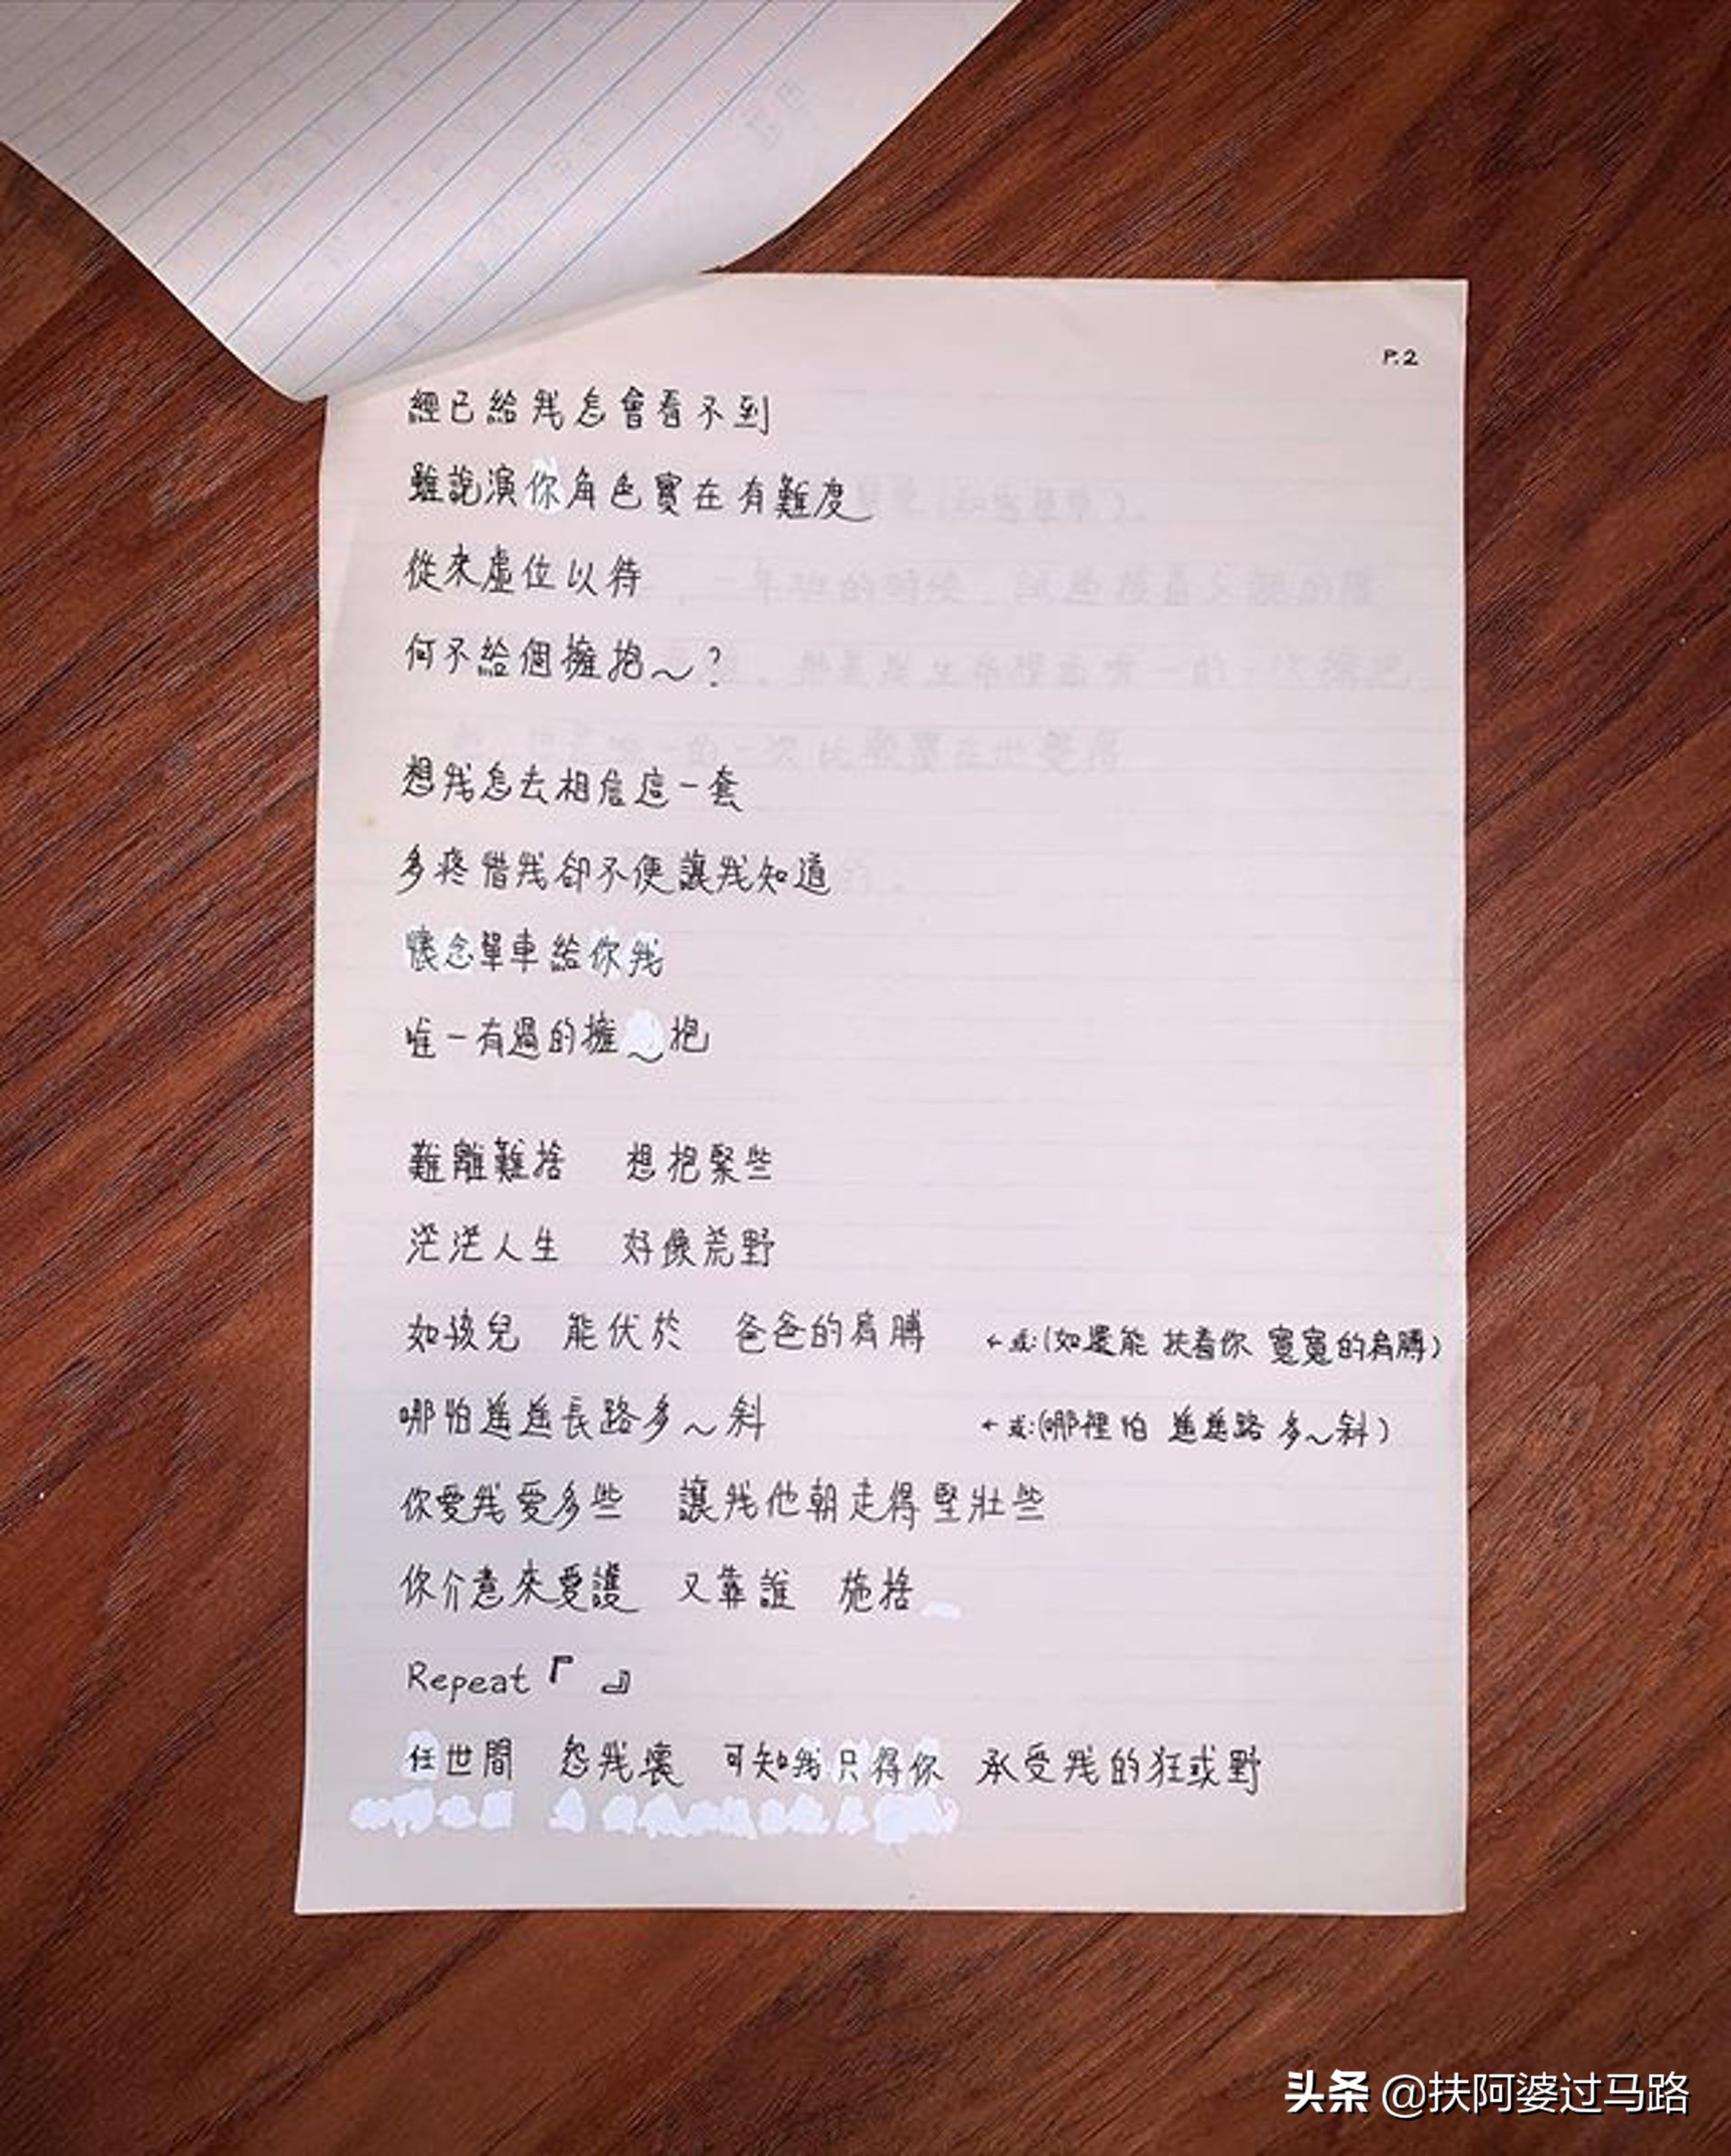 P.2
經已給我怎會看不到
雖說演你角色實在有難度
從來虛位以待
何不給個擁抱～?
想我怎去相信這一套
多疼惜我卻不便讓我知道
懷念單車給你我
唯一有過的擁～抱
難離難捨 想抱緊些
茫茫人生 好像荒野
如孩兒 能伏於 爸爸的肩膊 ←或:(如還能 扶着你 寬寬的肩膊)
哪怕遙遙長路多～斜 ←或:(哪裡怕 遙遙路 多～斜)
你愛我愛多些 讓我他朝走得堅壯些
你介意來愛護 又靠誰 施捨
Repeat『 』
任世間 怨我壞 可知我只得你 承受我的狂或野
头条 @扶阿婆过马路